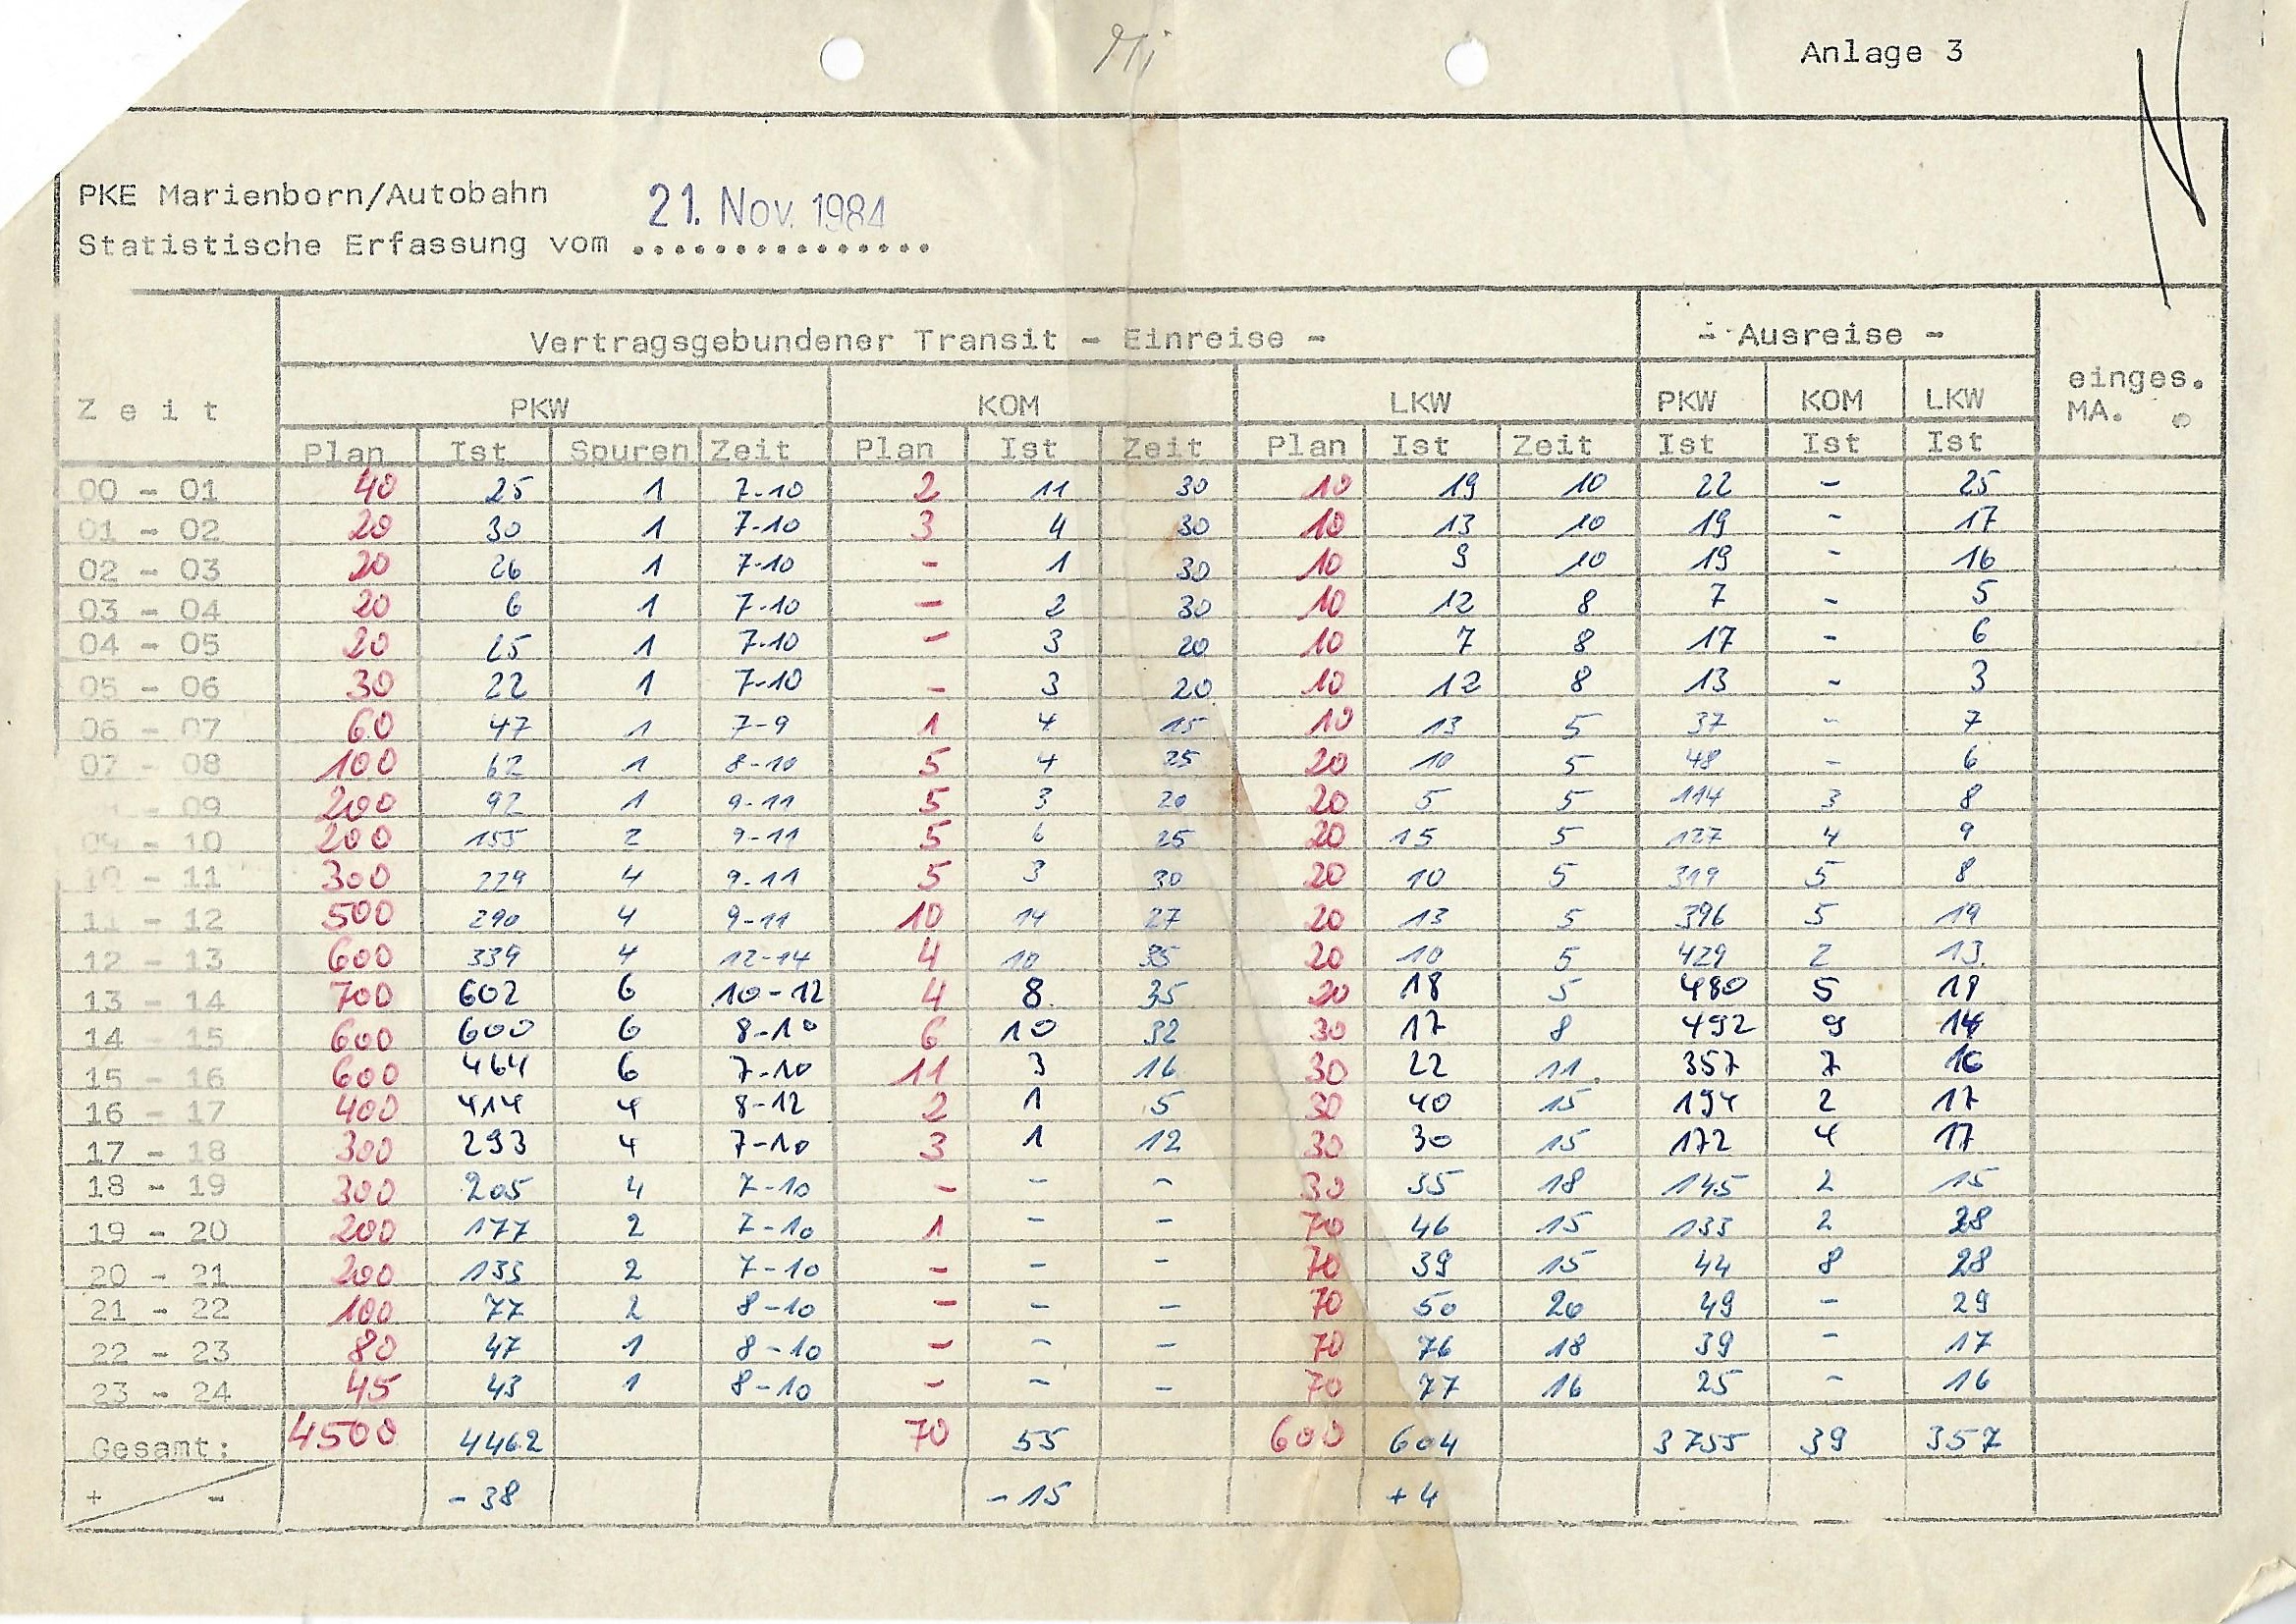 Anlage 3
PKE Marienborn/Autobahn
21. Nov. 1984
Statistische Erfassung vom ...............
Vertragsgebundener Transit - Einreise - - Ausreise -
Zeit PKW KOM LKW PKW KOM LKW einges. MA.
Plan Ist Spuren Zeit Plan Ist Zeit Plan Ist Zeit Ist Ist Ist
00 - 01 40 25 1 7-10 2 11 30 10 19 10 22 - 25
01 - 02 20 30 1 7-10 3 4 30 10 13 10 19 - 17
02 - 03 20 26 1 7-10 - 1 30 10 9 10 19 - 16
03 - 04 20 6 1 7-10 - 2 30 10 12 8 7 - 5
04 - 05 20 25 1 7-10 - 3 20 10 7 8 17 - 6
05 - 06 30 22 1 7-10 - 3 20 10 12 8 13 - 3
06 - 07 60 47 1 7-9 1 4 15 10 13 5 37 - 7
07 - 08 100 62 1 8-10 5 4 25 20 10 5 48 - 6
- 09 200 92 1 9-11 5 3 20 20 5 5 114 3 8
09 - 10 200 155 2 9-11 5 6 25 20 15 5 127 4 9
10 - 11 300 229 4 9-11 5 3 30 20 10 5 319 5 8
11 - 12 500 290 4 9-11 10 14 27 20 13 5 396 5 19
12 - 13 600 339 4 12-14 4 10 35 20 10 5 429 2 13
13 - 14 700 602 6 10-12 4 8 35 20 18 5 480 5
14 - 15 600 600 6 8-10 6 10 32 30 17 8 492 9 14
15 - 16 600 464 6 7-10 11 3 16 30 22 11 357 7 16
16 - 17 400 414 4 8-12 2 1 5 30 40 15 194 2 17
17 - 18 300 293 4 7-10 3 1 12 30 30 15 172 4 17
18 - 19 300 205 4 7-10 - - - 30 35 18 145 2 15
19 - 20 200 177 2 7-10 1 - - 70 46 15 133 2 28
20 - 21 200 133 2 7-10 - - - 70 39 15 44 8 28
21 - 22 100 77 2 8-10 - - - 70 50 20 49 - 29
22 - 23 80 47 1 8-10 - - - 70 76 18 39 - 17
23 - 24 45 43 1 8-10 - - - 70 77 16 25 - 16
Gesamt: 4500 4462 70 55 600 604 3755 39 357
+ - - 38 - 15 + 4